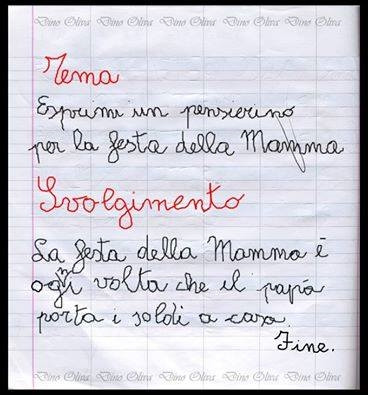 Dino Oliva Dino Oliva Dino Oliva Dino Oliva Dino Oliva
Tema
Esprimi un pensierino
per la festa della Mamma
Svolgimento
La festa della Mamma è
ogni volta che il papà
porta i soldi a casa
Fine.
Dino Oliva Dino Oliva Dino Oliva Dino Oliva Dino Oliva